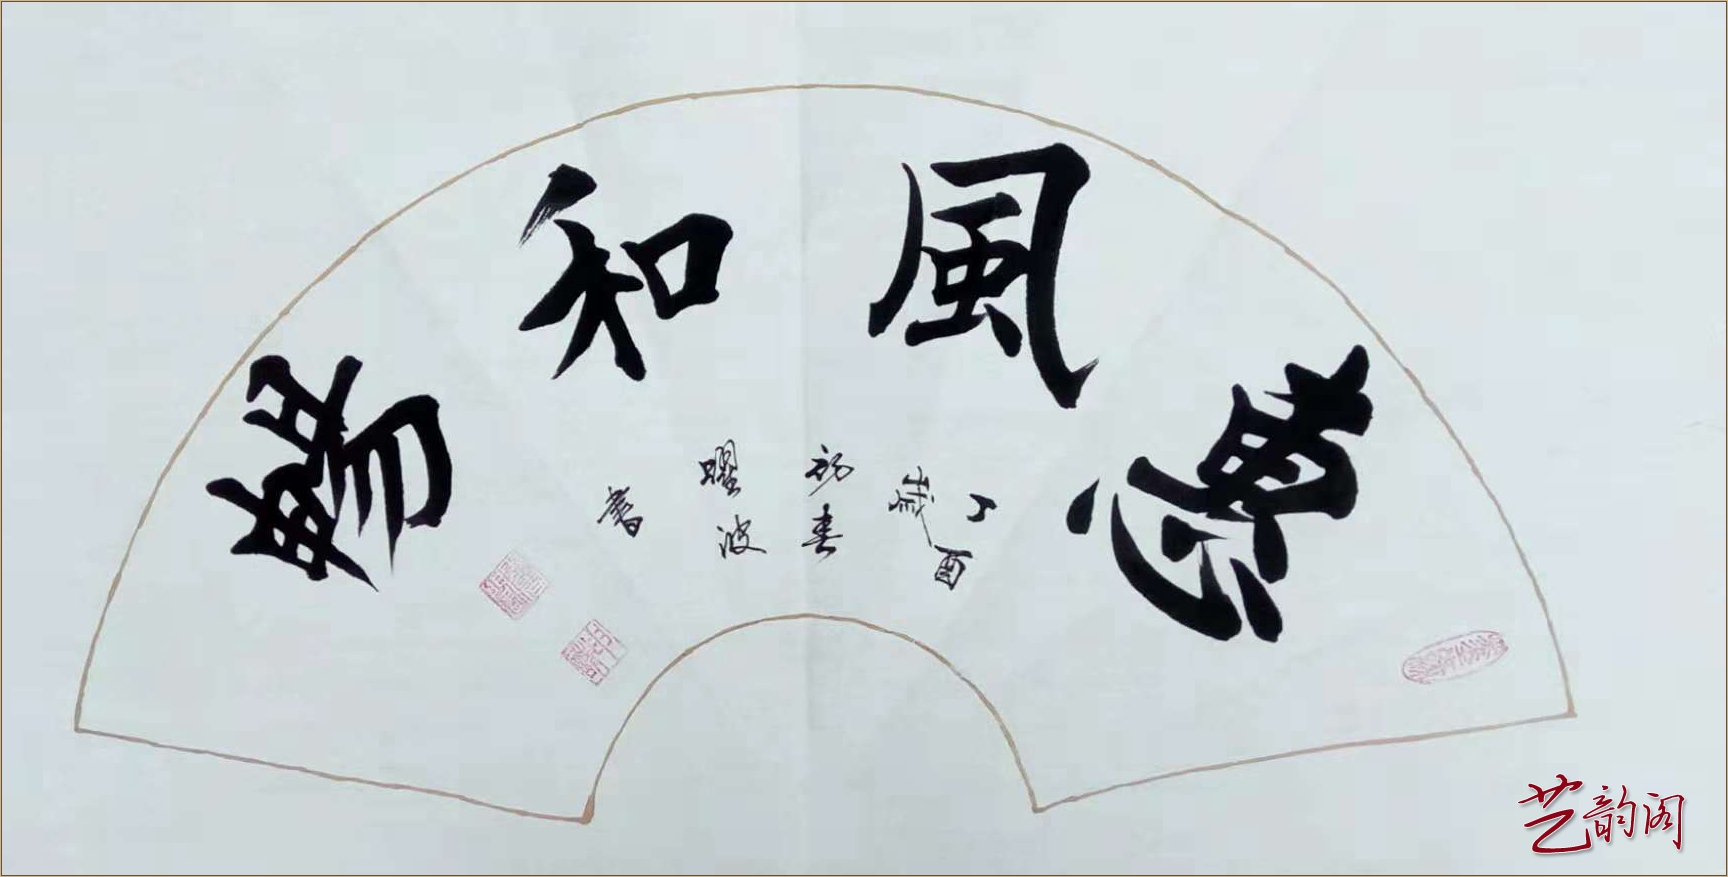 惠風和暢
丁酉
歲
初春
曜波
書
艺韵阁